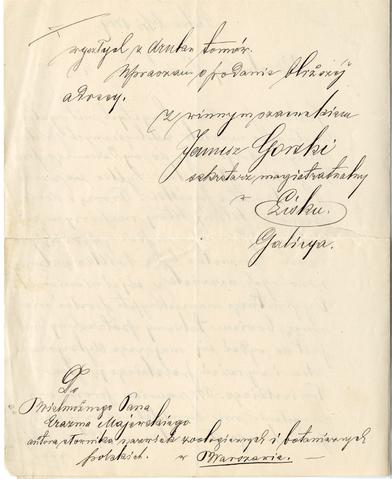 wyszłych z druku tomów.
Upraszam o podanie bliższej
adresy.
Z winnym szacunkiem
Janusz Gorski
sekretarz magistratualny
w Lisku.
Galicya.
Do
Wielmożnego Pana
Erazma Majewskiego
autora słownika nazwisk zoologicznych i botanicznych
polskich. w Warszawie.